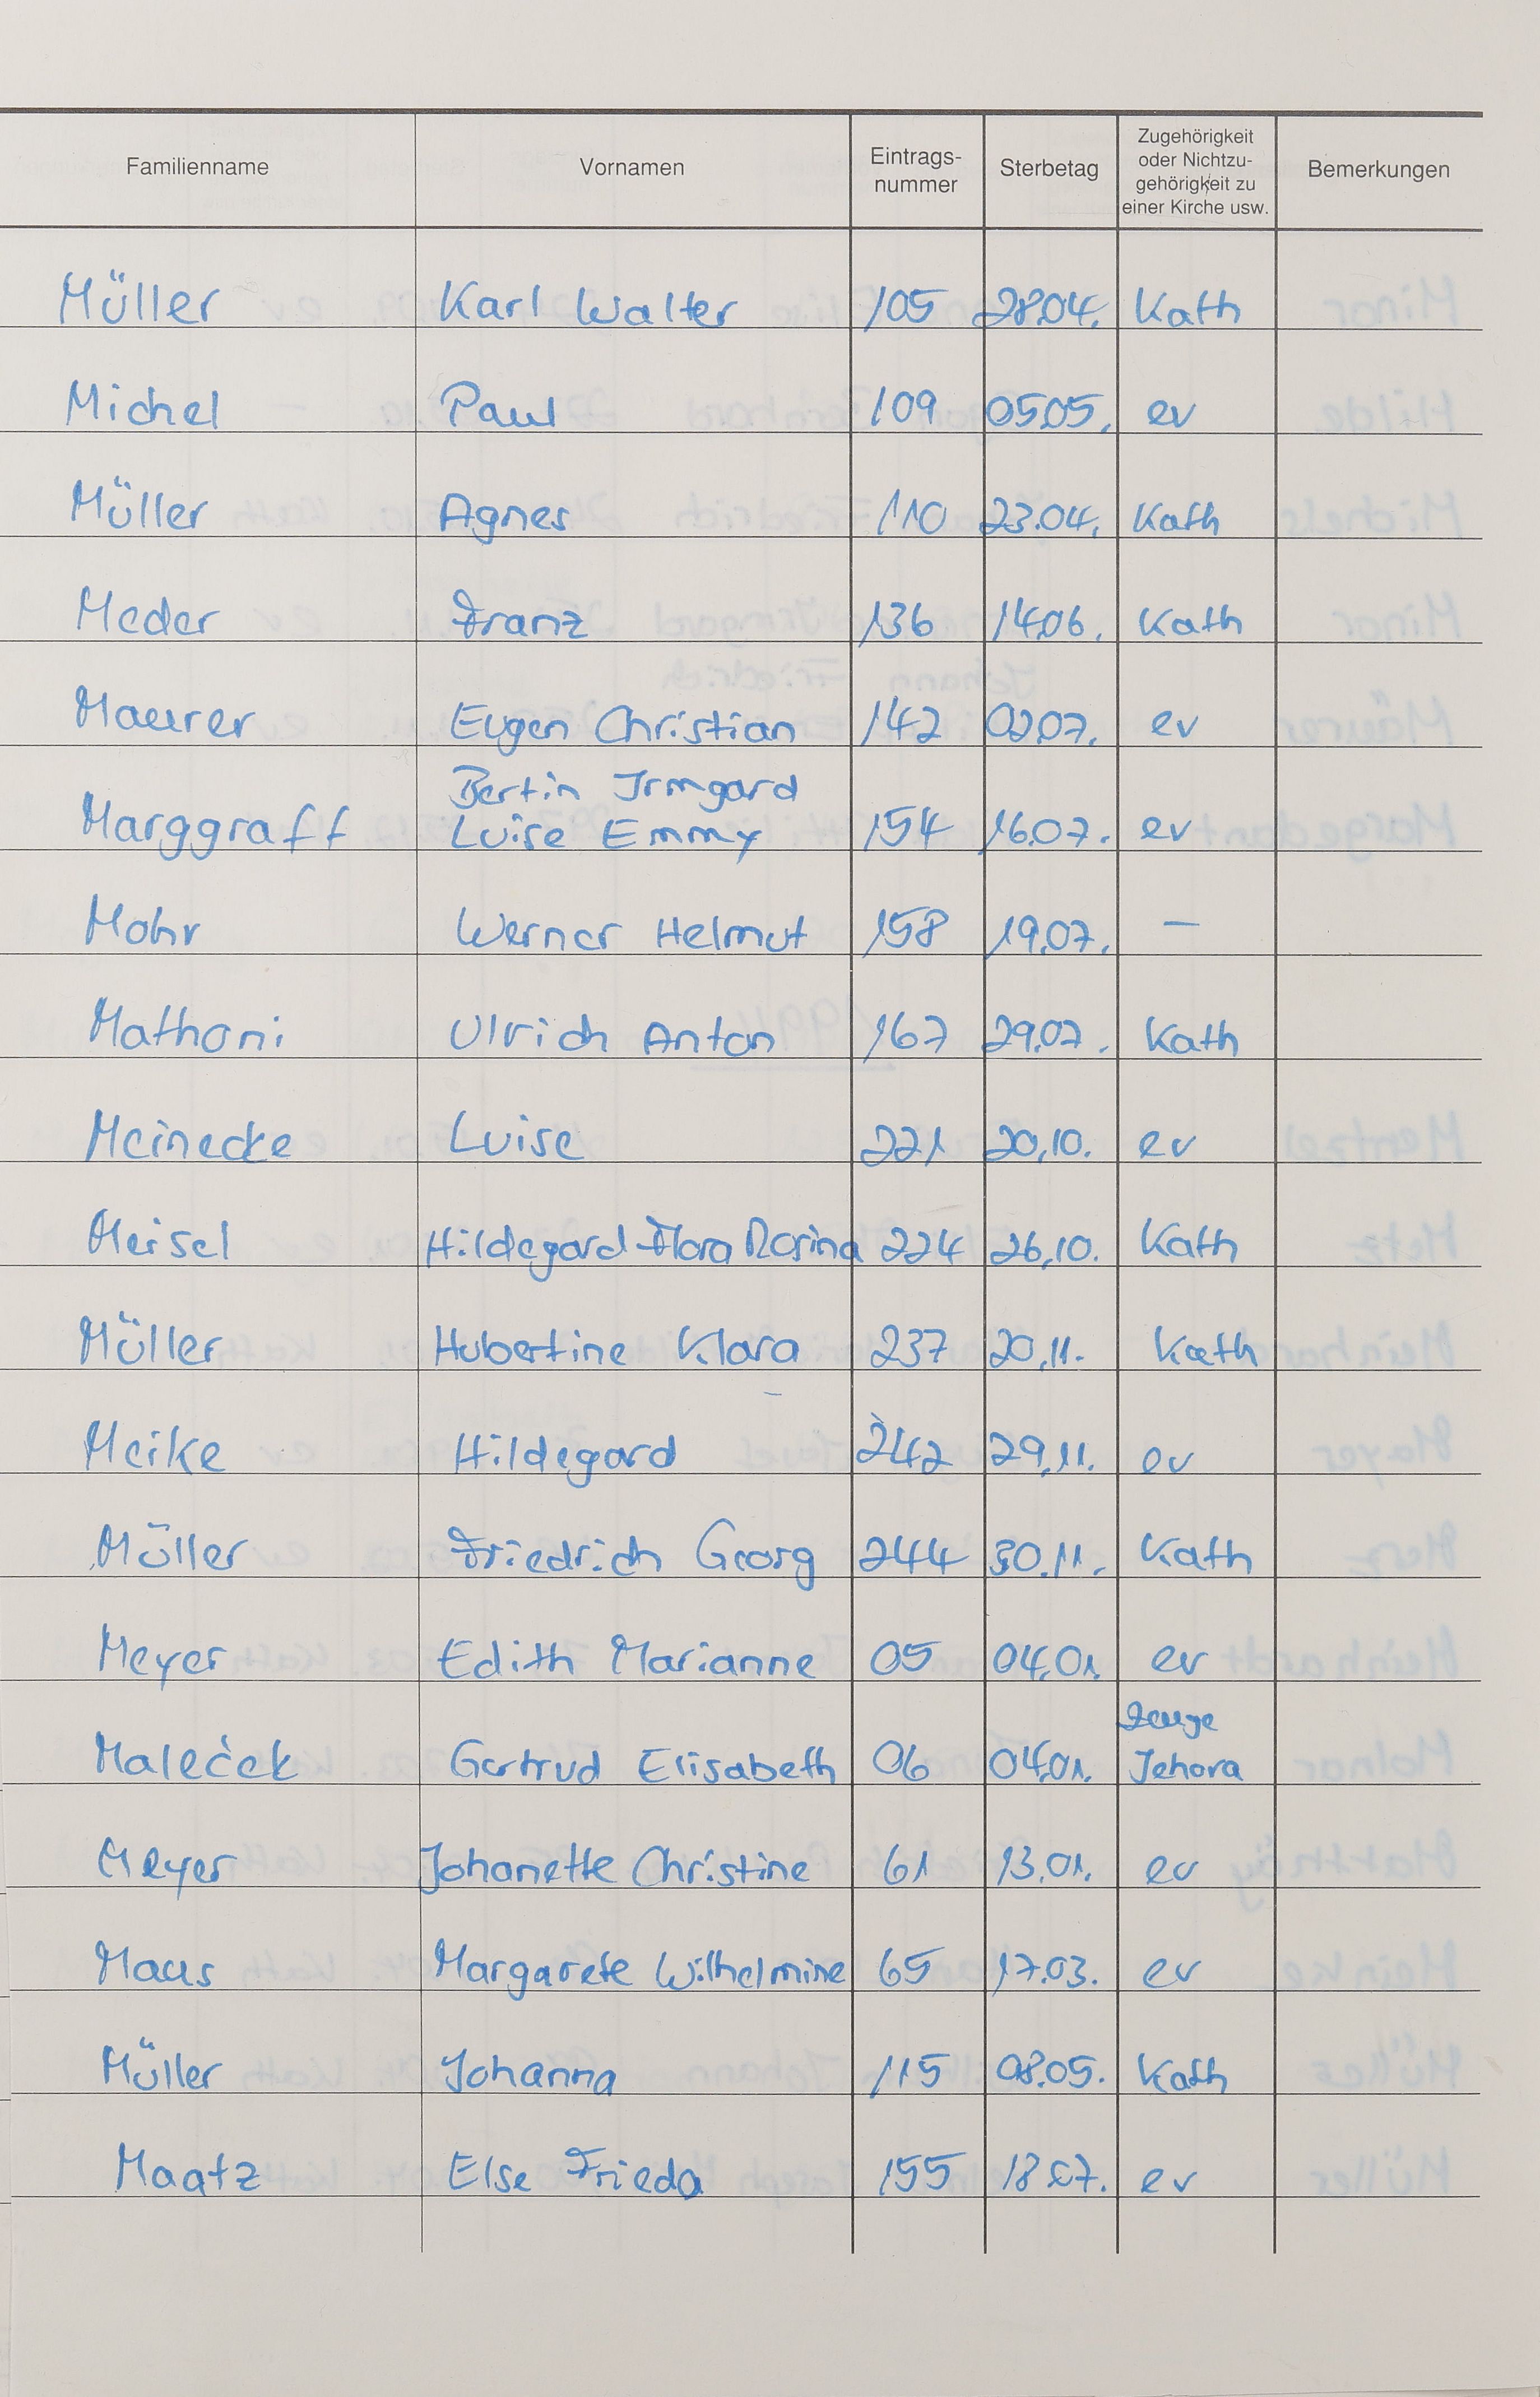 Familienname Vornamen Eintrags-nummer Sterbetag Zugehörigkeit oder Nichtzu-gehörigkeit zu einer Kirche usw. Bemerkungen
Müller Karl Walter 105 28.04. Kath
Michel Paul 109 05.05. ev
Müller Agnes 110 23.04. Kath
Meder Franz 136 14.06. Kath
Maurer Eugen Christian 142 02.07. ev
Bertin Irmgard
Marggraff Luise Emmy 154 16.07. ev
Mohr Werner Helmut 158 19.07. —
Mathoni Ulrich Anton 167 29.07. Kath
Meinecke Luise 221 20.10. ev
Meisel Hildegard Flora Rosina 224 26.10. Kath
Müller Hubertine Klara 237 20.11. Kath
Meike Hildegard 242 29.11. ev
Müller Friedrich Georg 244 30.11. Kath
Meyer Edith Marianne 05 04.01. ev
Zeuge
Maleček Gertrud Elisabeth 06 04.01. Jehova
Meyer Johanette Christine 61 13.01. ev
Maus Margarete Wilhelmine 65 17.03. ev
Müller Johanna 115 08.05. Kath
Maatz Else Frieda 155 18.07. ev